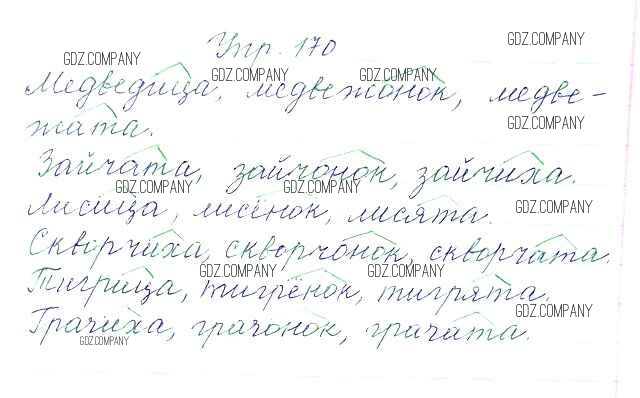 Упр. 170
Медведица, медвежонок, медве-
жата.
Зайчата, зайчонок, зайчиха.
Лисица, лисёнок, лисята.
Скворчиха, скворчонок, скворчата.
Тигрица, тигрёнок, тигрята.
Грачиха, грачонок, грачата.
GDZ.COMPANY
GDZ.COMPANY
GDZ.COMPANY
GDZ.COMPANY
GDZ.COMPANY
GDZ.COMPANY
GDZ.COMPANY
GDZ.COMPANY
GDZ.COMPANY
GDZ.COMPANY
GDZ.COMPANY
GDZ.COMPANY